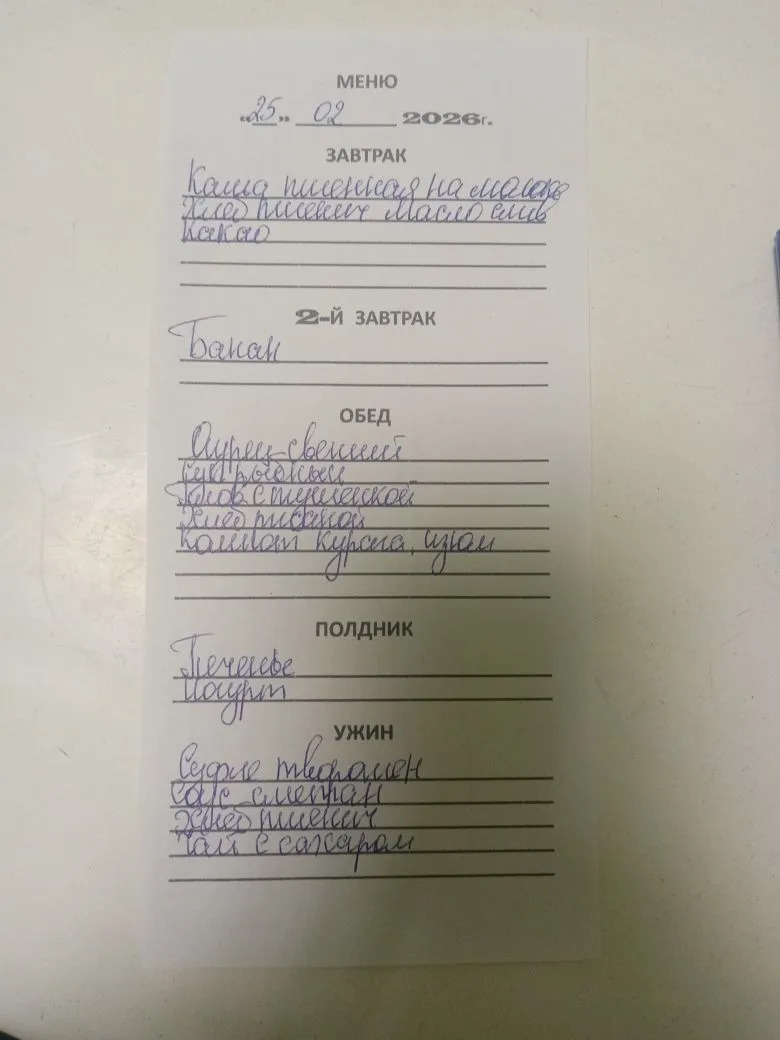 МЕНЮ
«25» 02 2026г.
ЗАВТРАК
Каша пшенная на молоке
Хлеб пшенич масло слив
какао
2-Й ЗАВТРАК
Банан
ОБЕД
Огурец свежий
суп рыбный
Плов с тушенкой
Хлеб ржаной
Компот курага, изюм
ПОЛДНИК
Печенье
Йогурт
УЖИН
Суфле творожн
соус сметан
Хлеб пшенич
Чай с сахаром